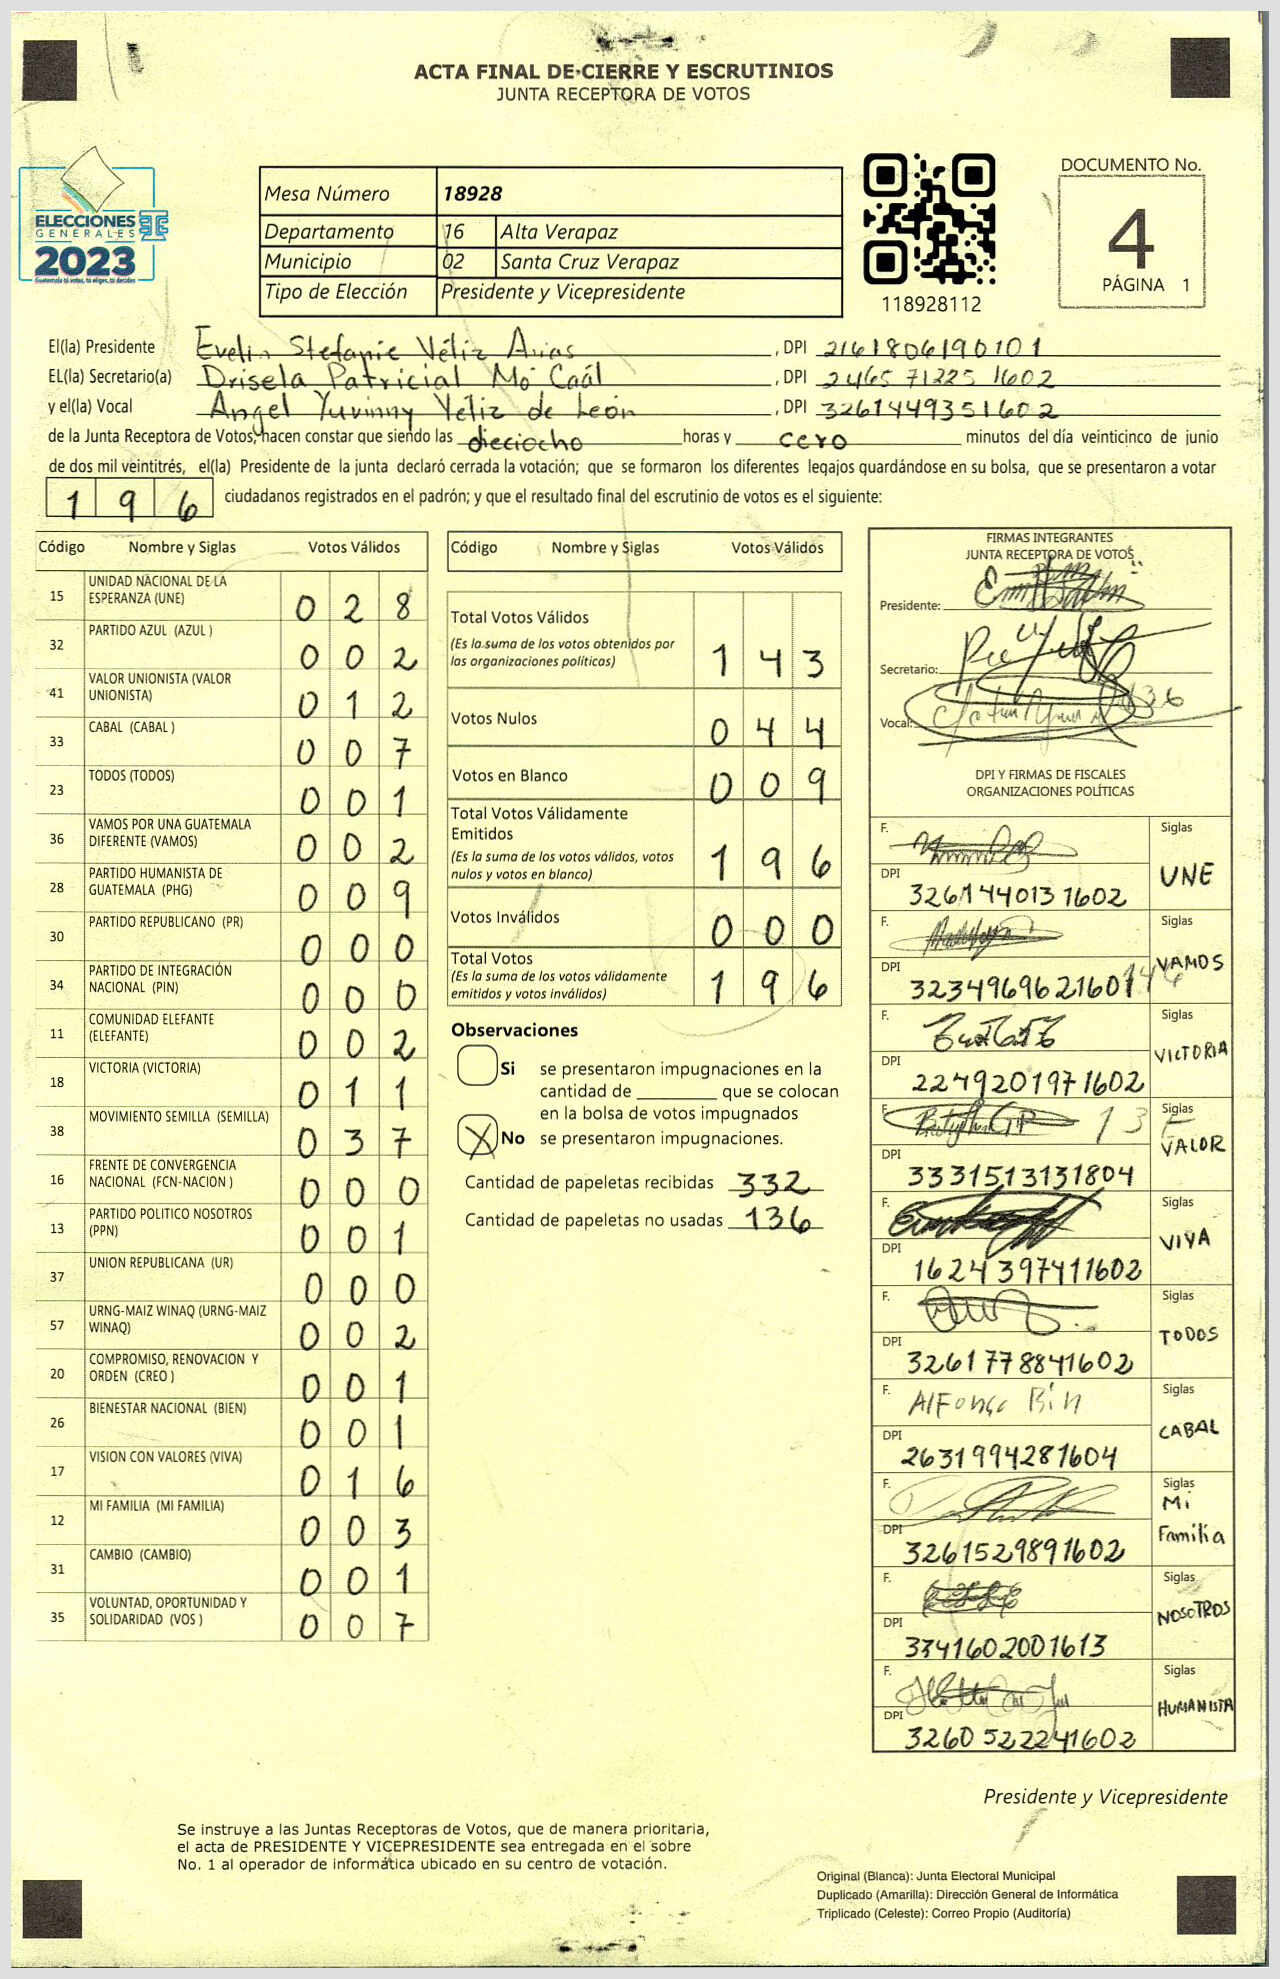 ACTA FINAL DE CIERRE Y ESCRUTINIOS
JUNTA RECEPTORA DE VOTOS
ELECCIONES
GENERALES
2023
Guatemala tú votas, tú eliges, tú decides
Mesa Número 18928
Departamento 16 Alta Verapaz
Municipio 02 Santa Cruz Verapaz
Tipo de Elección Presidente y Vicepresidente
118928112
DOCUMENTO No.
4
PÁGINA 1
El(la) Presidente Evelin Stefanie Véliz Arias, DPI 2161806190101
EL(la) Secretario(a) Drisela Patricial Mó Caál, DPI 2465 71225 1602
y el(la) Vocal Angel Yuvinny Véliz de León, DPI 3261449351602
de la Junta Receptora de Votos, hacen constar que siendo las dieciocho horas y cero minutos del día veinticinco de junio
de dos mil veintitrés, el(la) Presidente de la junta declaró cerrada la votación; que se formaron los diferentes legajos guardándose en su bolsa, que se presentaron a votar
196 ciudadanos registrados en el padrón; y que el resultado final del escrutinio de votos es el siguiente:
Código Nombre y Siglas Votos Válidos
15 UNIDAD NACIONAL DE LA ESPERANZA (UNE) 028
32 PARTIDO AZUL (AZUL ) 002
41 VALOR UNIONISTA (VALOR UNIONISTA) 012
33 CABAL (CABAL ) 007
23 TODOS (TODOS) 001
36 VAMOS POR UNA GUATEMALA DIFERENTE (VAMOS) 002
28 PARTIDO HUMANISTA DE GUATEMALA (PHG) 009
30 PARTIDO REPUBLICANO (PR) 000
34 PARTIDO DE INTEGRACIÓN NACIONAL (PIN) 000
11 COMUNIDAD ELEFANTE (ELEFANTE) 002
18 VICTORIA (VICTORIA) 011
38 MOVIMIENTO SEMILLA (SEMILLA) 037
16 FRENTE DE CONVERGENCIA NACIONAL (FCN-NACION ) 000
13 PARTIDO POLITICO NOSOTROS (PPN) 001
37 UNION REPUBLICANA (UR) 000
57 URNG-MAIZ WINAQ (URNG-MAIZ WINAQ) 002
20 COMPROMISO, RENOVACION Y ORDEN (CREO ) 001
26 BIENESTAR NACIONAL (BIEN) 001
17 VISION CON VALORES (VIVA) 016
12 MI FAMILIA (MI FAMILIA) 003
31 CAMBIO (CAMBIO) 001
35 VOLUNTAD, OPORTUNIDAD Y SOLIDARIDAD (VOS ) 007
Código Nombre y Siglas Votos Válidos
Total Votos Válidos
(Es la suma de los votos obtenidos por las organizaciones políticas) 143
Votos Nulos 044
Votos en Blanco 009
Total Votos Válidamente Emitidos
(Es la suma de los votos válidos, votos nulos y votos en blanco) 196
Votos Inválidos 000
Total Votos
(Es la suma de los votos válidamente emitidos y votos inválidos) 196
Observaciones
Si se presentaron impugnaciones en la
cantidad de ________ que se colocan
en la bolsa de votos impugnados
X No se presentaron impugnaciones.
Cantidad de papeletas recibidas 332
Cantidad de papeletas no usadas 136
FIRMAS INTEGRANTES
JUNTA RECEPTORA DE VOTOS
Presidente:
Secretario:
Vocal:
DPI Y FIRMAS DE FISCALES
ORGANIZACIONES POLÍTICAS
F. Siglas UNE
DPI 3261440131602
F. Siglas VAMOS
DPI 3234969621601
F. Siglas VICTORIA
DPI 2249201971602
F. Siglas VALOR
DPI 3331513131804
F. Siglas VIVA
DPI 1624397411602
F. Siglas TODOS
DPI 3261778841602
F. Alfonso Bin Siglas CABAL
DPI 2631994281604
F. Siglas Mi Familia
DPI 3261529891602
F. Siglas NOSOTROS
DPI 3341602001613
F. Siglas HUMANISTA
DPI 3260522241602
Presidente y Vicepresidente
Se instruye a las Juntas Receptoras de Votos, que de manera prioritaria,
el acta de PRESIDENTE Y VICEPRESIDENTE sea entregada en el sobre
No. 1 al operador de informática ubicado en su centro de votación.
Original (Blanca): Junta Electoral Municipal
Duplicado (Amarilla): Dirección General de Informática
Triplicado (Celeste): Correo Propio (Auditoría)